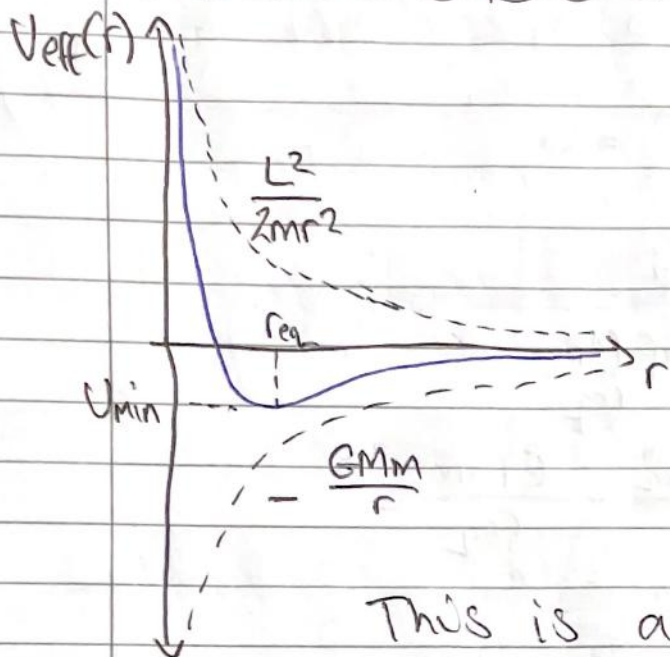 Ueff(r)
L²
2mr²
req
r
Umin
GMm
− r
This is a